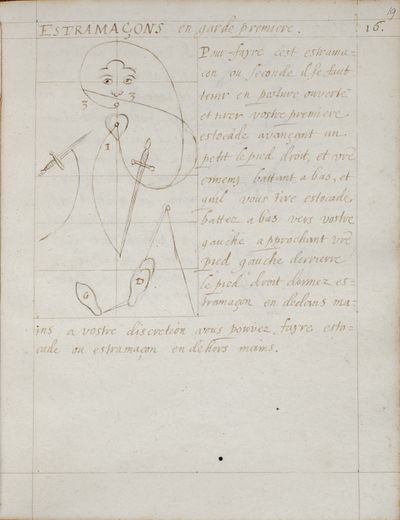 19
ESTRAMAÇONS en garde premiere.
16.
Pour fayre cest estrama=
con ou seconde il se faut
tenir en posture ouverte
et tirer vostre premiere
estocade avançant un
petit le pied droit, et vre
ennemi battant a bas, et
quil vous tire estocade,
battez a bas vers vostre
gauche approchant vre
pied gauche derriere
le pied droit donnez es=
tramaçon en dedans ma=
ins a vostre discretion vous pouvez fayre esto=
cade ou estramaçon en dehors mains.
3
3
1
G
D